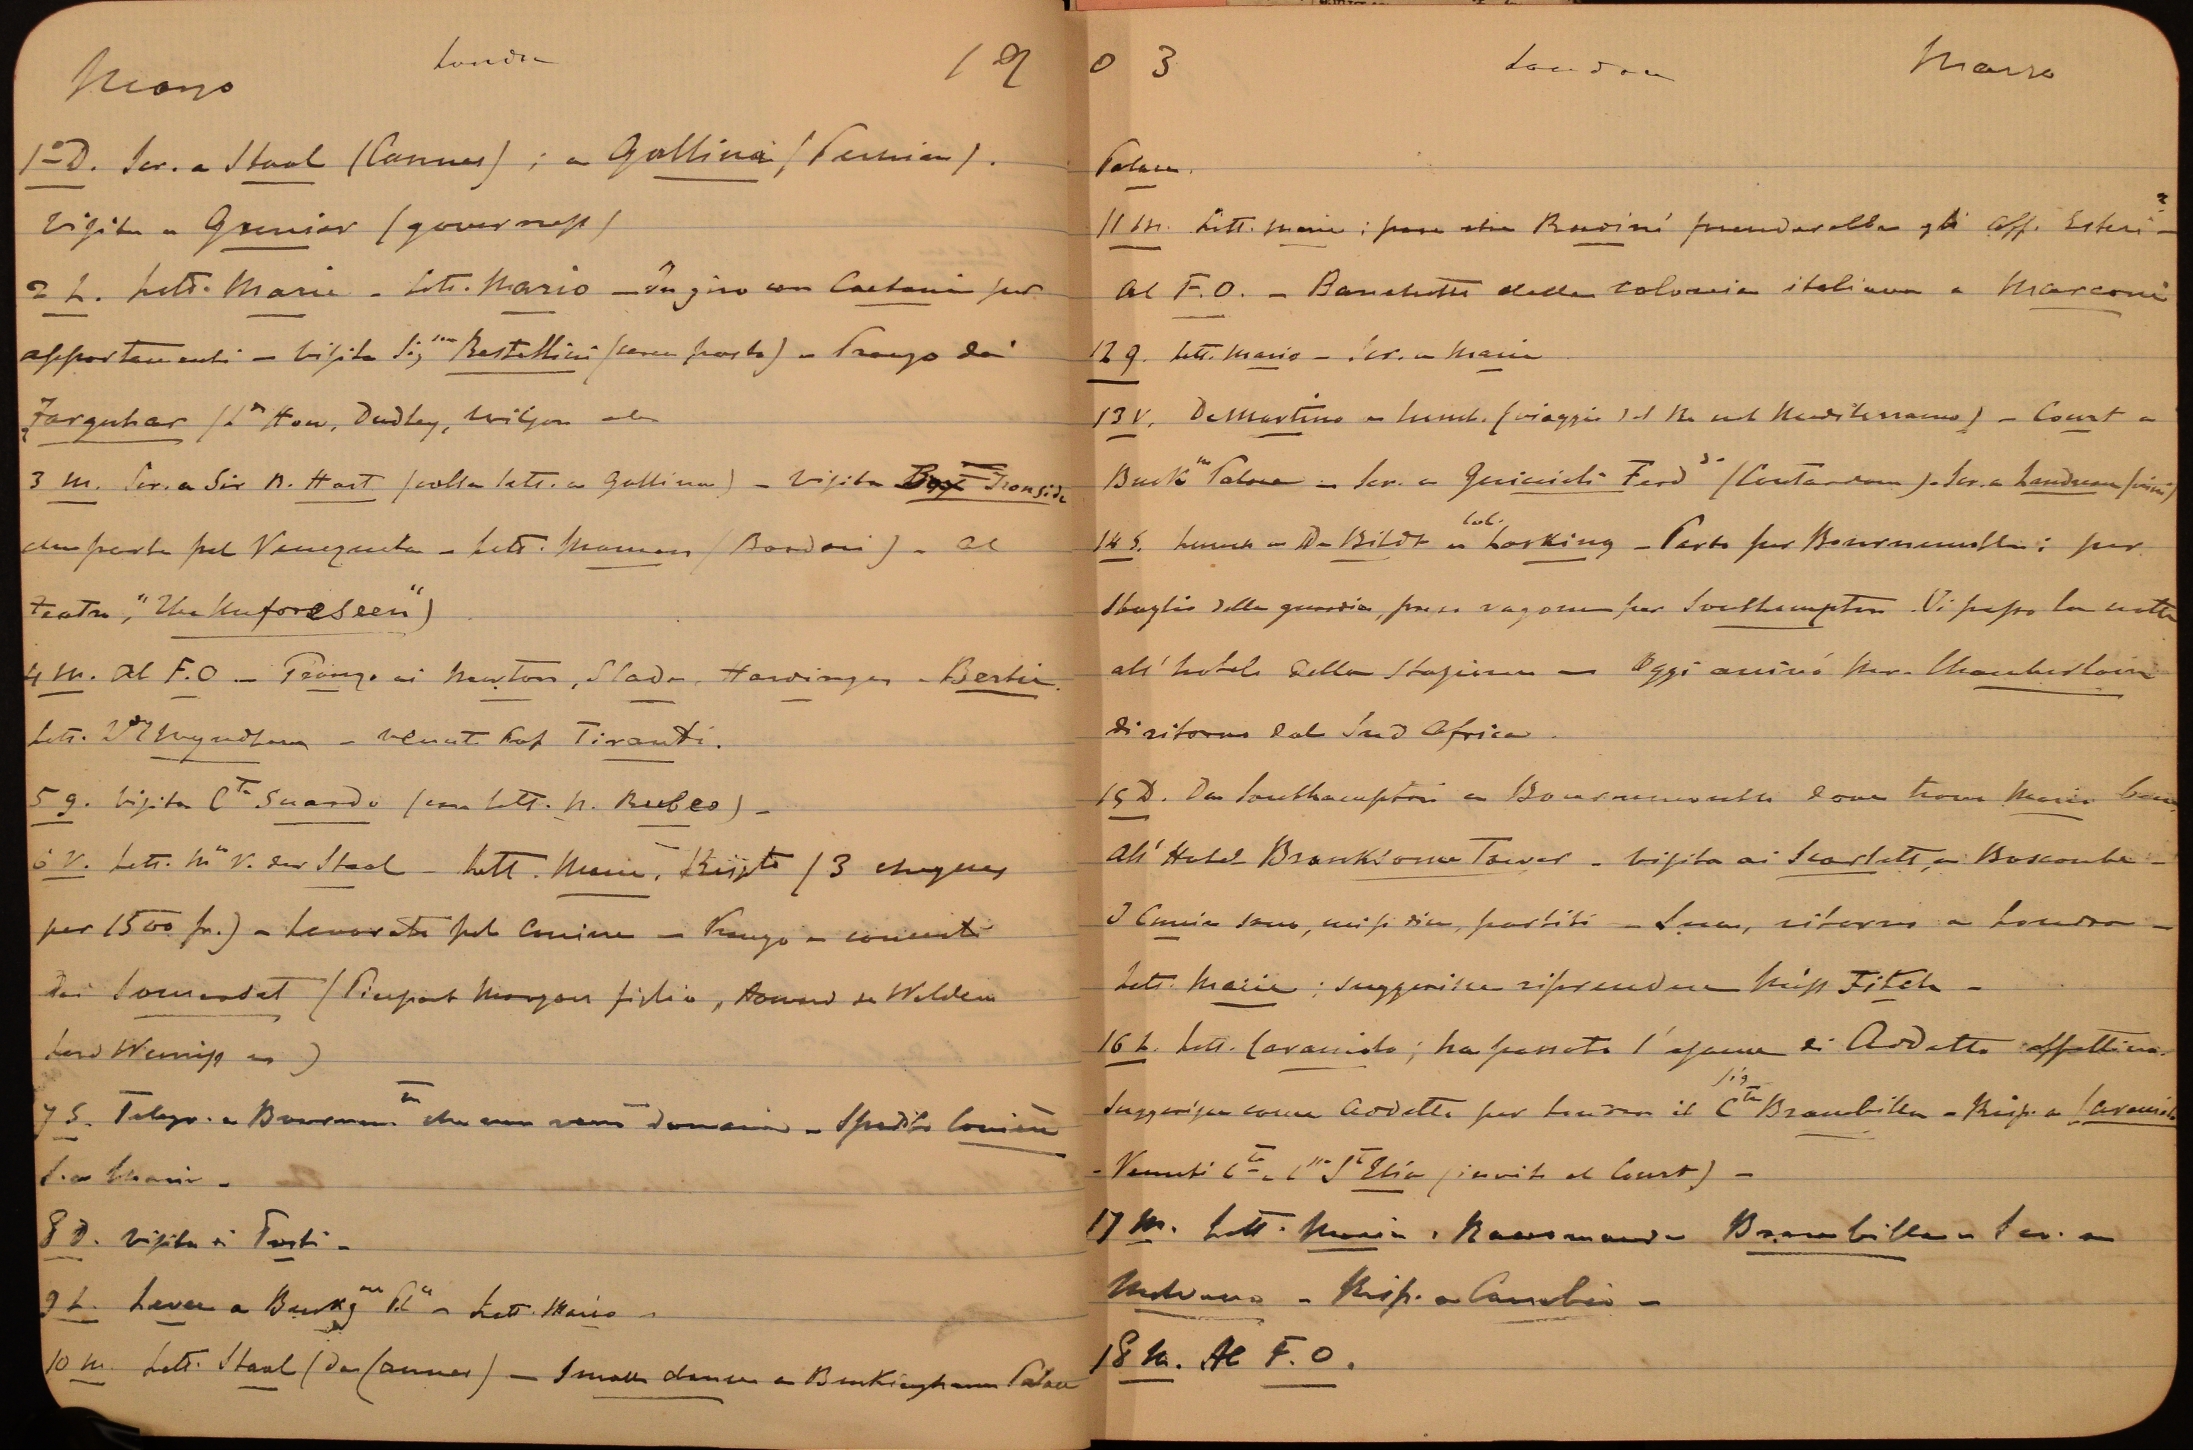 Marzo Londra 19
1° D. Scr. a Staal (Cannes); a Gallina (Pechino).
Visita a Grenier (governess)
2 L. Lett. Marie - Lett. Mario - In giro con Caetani per
appartamenti - Visita Sig.na Restellini (cerca posto) - Pranzo dai
Farquhar (Lд Howe, Dudley, Wilson etc
3 M. Scr. a Sir R. Hart (colla lett. a Gallina) - Visita Ironside
che parte pel Venezuela - Lett. Maman (Bordoni) - Al
teatro, "The Unforeseen")
4 M. Al F.O - Pranzo ai Newton, Slade, Hardinge, Bertie.
Lett. Wyndham - Venuto Tiranti.
5 G. Visita C.te Suardo (con lett. Rubeo) -
6 V. Lett. M. V. de Staal - Lett. Marie, Risp.to (3 cheques
per 1500 fr.) - Lavorato pel corriere - Pranzo e concerto
dai Somerset (Pierpont Morgan figlio, Howard de Walden
Lord Wemyss)
7 S. Telegr. a Bournem.th che non verrò domani - Spedito corriere
S. a Mario -
8 D. Visita ai Tosti -
9 L. Levee a Buckg.m P.ce - Lett. Mario -
10 M. Lett. Staal (da Cannes) - Small dance a Buckingham Palace
03 London Marzo
Palace.
11 M. Lett. Marie; pare che Rudinì prenderebbe gli Aff. Esteri? -
Al F.O. - Banchetto della colonia italiana a Marconi
12 G. Lett. Mario - Scr. a Marie
13 V. De Martino a lunch. (viaggio del Re nel Mediterraneo) - Court a
Buck.m Palace - Scr. a Guiccioli Ferd.do (Contardone). Scr. a Landman (vini)
14 S. Lunch a De Bildt e Col. Locking - Parto per Bournemouth; per
sbaglio della guardia, preso vagone per Southampton. Vi passo la notte
all'hotel della Stazione - Oggi arrivò Mr. Chamberlain
di ritorno dal Sud Africa.
15 D. Da Southampton a Bournemouth dove trovo Marie bene
All'Hotel Branksome Tower - Visita ai Scarlett, a Boscombe -
I Cunia sono, mi si dice, partiti - Sera, ritorno a Londra -
Lett. Marie; suggerisce riprendere Miss Fitch -
16 L. Lett. Caracciolo; ha passato l'esame di Addetto
Suggerisce come Addetto per Londra il Sig. C.te Brambilla - Risp. a Caracciolo
- Venuti C.te e C.ssa S.t Elia (invito al Court) -
17 M. Lett. Marie. Raccomanda Brambilla - Scr. a
Malvano - Risp. a Cambio -
18 M. Al F.O.